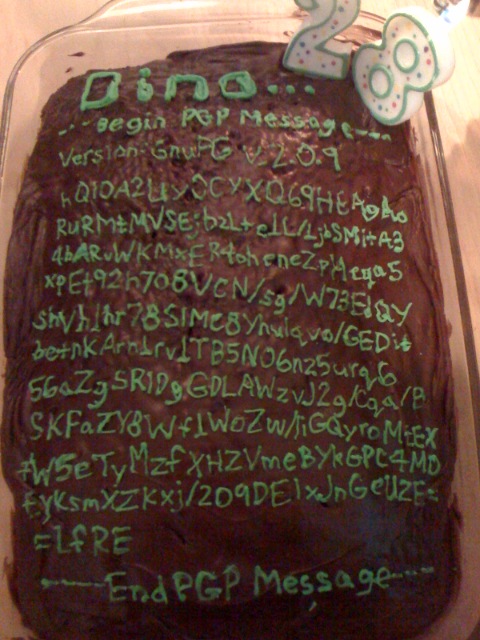 28
Dino...
-.-Begin PGP Message---
Version: GnuPG v2.0.9
hQIOA2LlyOCYXQ69HEAgAo
RuRMtMVSEjbzLtelL/LjbSMitA3
4bARvWKMxER4oheneZplAega5
xpEt92h7o8VCN/sg/W73EIQY
shVhlhr78SIMc8Yhulqvo/GEDit
betnKArnlrvlTB5NO6nz5urq6
56aZgSRIDgGDLAWzvJ2g/Cqa/B
SKFaZY8WflWoZw/liGQyroMitEX
tW5eTyMzfXHZVmeBYkGPC4MD
EyKsmXZKxj/2O9DElxJnGeUZE=
=LfRE
-----End PGP Message----